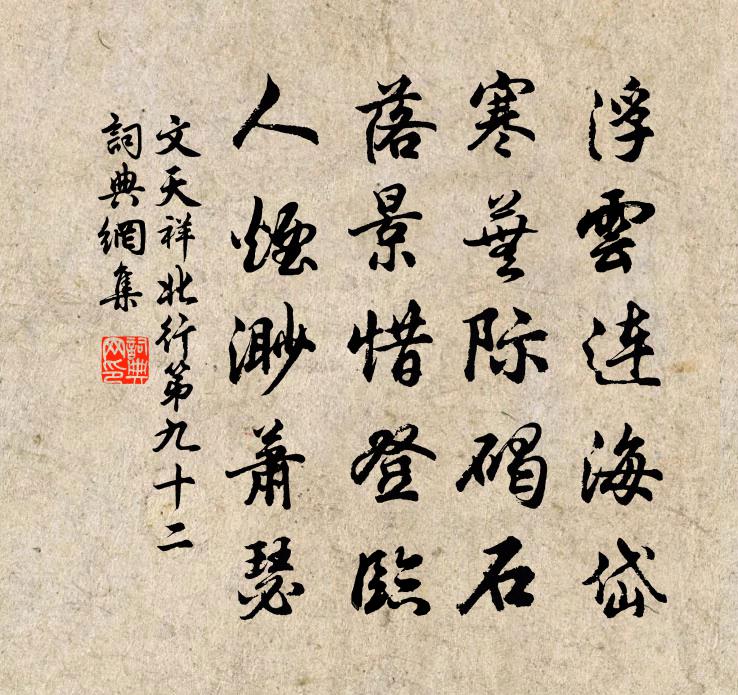 浮雲连海岱
寒蕪际碣石
落景惜登臨
人煙渺蕭瑟
文天祥北行第九十二
詞典網集
詞典网印